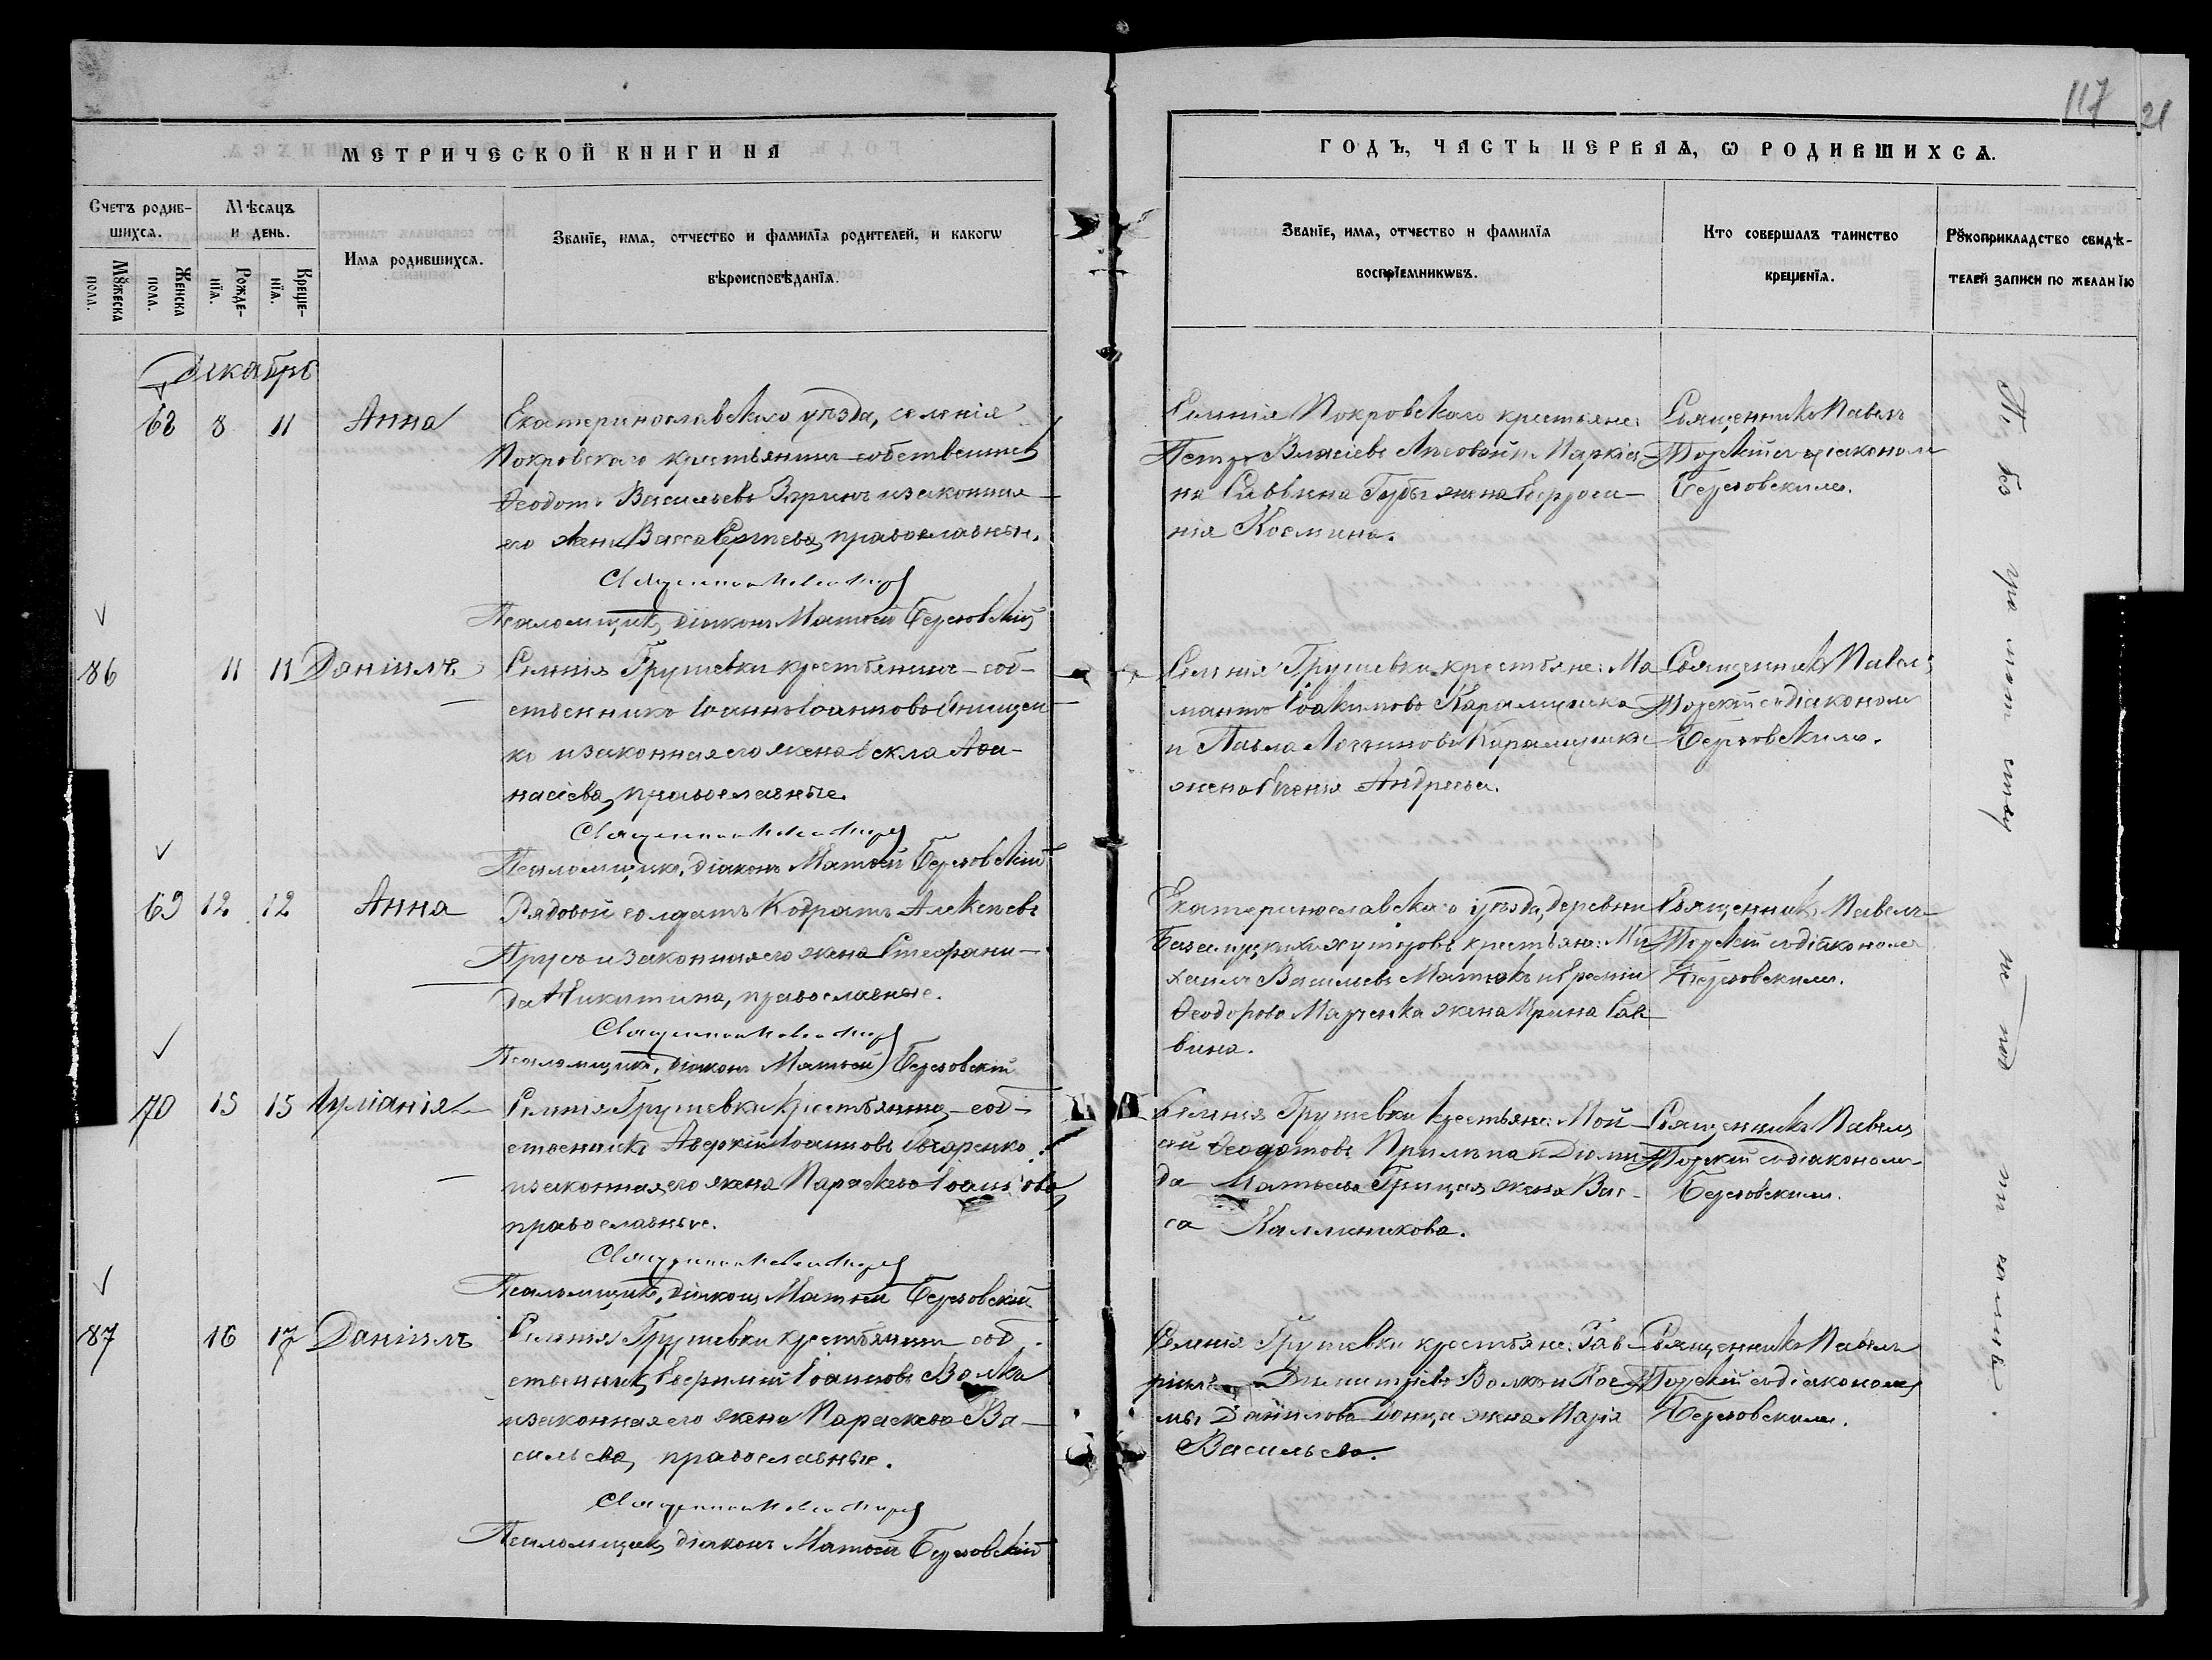 117
21
МЕТРИЧЕСКОЙ КНИГИ НА
ГОДЪ, ЧАСТЬ ПЕРВАѦ, Ѡ РОДИВШИХСѦ.
Счетъ родившихсѧ.
Мѣсѧцъ и день.
Мꙋжеска пола.
Женска пола.
Рожденїѧ.
Крещенїѧ.
Имѧ родившихсѧ.
Званїе, имѧ, отчество и фамилїѧ родителей, и какогѡ
вѣроисповѣданїѧ.
Званїе, имѧ, отчество и фамилїѧ
воспрїемникѡвъ.
Кто совершалъ таинство
крещенїѧ.
Рꙋкоприкладство свидѣ-
телей записи по желанїю
Декабрь
68 8 11 Анна
Екатеринославскаго уѣзда, селенія
Покровскаго крестьянинъ-собственникъ
Ѳеодотъ Васильевъ Зиринъ и законная
его жена Васса Сергѣева, православные.
Священникъ Павелъ Торскій
Псаломщикъ, діаконъ Матѳей Березовскій
Селенія Покровскаго крестьяне:
Петръ Власіевъ Лисовый и Маркіа-
на Саввина Губы жена Евфроси-
нія Космина.
Священникъ Павелъ
Торскій съ діакономъ
Березовскимъ.
86 11 11 Даніилъ
Селенія Грушевки крестьянинъ-соб-
ственникъ Іоаннъ Іоанновъ Онищен-
ко и законная его жена Ѳекла Аѳа-
насіева, православные.
Священникъ Павелъ Торскій
Псаломщикъ, діаконъ Матѳей Березовскій
Селенія Грушевки крестьяне: Ма
мантъ Іоакимовъ Карамушка
и Павла Логгинова Карамушки
жена Евгенія Андреева.
Священникъ Павелъ
Торскій съ діакономъ
Березовскимъ.
69 12 12 Анна
Рядовой солдатъ Кодратъ Алексѣевъ
Прусъ и законная его жена Стефани-
да Никитина, православные.
Священникъ Павелъ Торскій
Псаломщикъ, діаконъ Матѳей Березовскій
Екатеринославскаго уѣзда, деревни
хуторовъ крестьяне: Ми
хаилъ Васильевъ Матюхъ и Еремія
Ѳеодорова Марченка жена Ирина Сав-
вина.
Священникъ Павелъ
Торскій съ діакономъ
Березовскимъ.
70 15 15 Іуліанія
Селенія Грушевки крестьянинъ-соб-
ственникъ Аверкій Іоанновъ Овчаренко
и законная его жена Параскева Іоаннова
православные.
Священникъ Павелъ Торскій
Псаломщикъ, діаконъ Матѳей Березовскій
Селенія Грушевки крестьяне: Мой-
сей Ѳеодотовъ Прилѣпа и Діоми-
да Матѳеева Грицая жена Вас-
са Каллиникова.
Священникъ Павелъ
Торскій съ діакономъ
Березовскимъ.
87 16 17 Даніилъ
Селенія Грушевки крестьянинъ-соб-
ственникъ Евфимій Іоанновъ Волкъ
и законная его жена Параскева Ва-
сильева, православные.
Священникъ Павелъ Торскій
Псаломщикъ, діаконъ Матѳей Березовскій
Селенія Грушевки крестьяне: Гав-
ріилъ Димитріевъ Волкъ и Кос-
мы Данилова Донца жена Марія
Васильева.
Священникъ Павелъ
Торскій съ діакономъ
Березовскимъ.